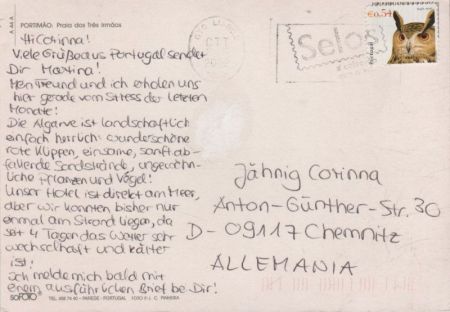 PORTIMÃO: Praia dos Três Irmãos
Hi Corinna!
Viele Grüße aus Portugal sendet
Dir Martina!
Mein Freund und ich erholen uns
hier gerade vom Stress der letzten
Monate!
Die Algarve ist landschaftlich
einfach herrlich: wunderschöne
rote Klippen, einsame, sanft ab-
fallende Sandstrände, ungewöhn-
liche Pflanzen und Vögel!
Unser Hotel ist direkt am Meer,
aber wir konnten bisher nur
einmal am Strand liegen, da
seit 4 Tagen das Wetter sehr
wechselhaft und kälter
ist!
Ich melde mich bald mit
einem ausführlichen Brief bei Dir!
TEL. 458 74 40 - PAREDE - PORTUGAL
OCT
Selos
€0,54
Portugal
Jähnig Corinna
Anton-Günther-Str. 30
D-09117 Chemnitz
ALLEMANIA